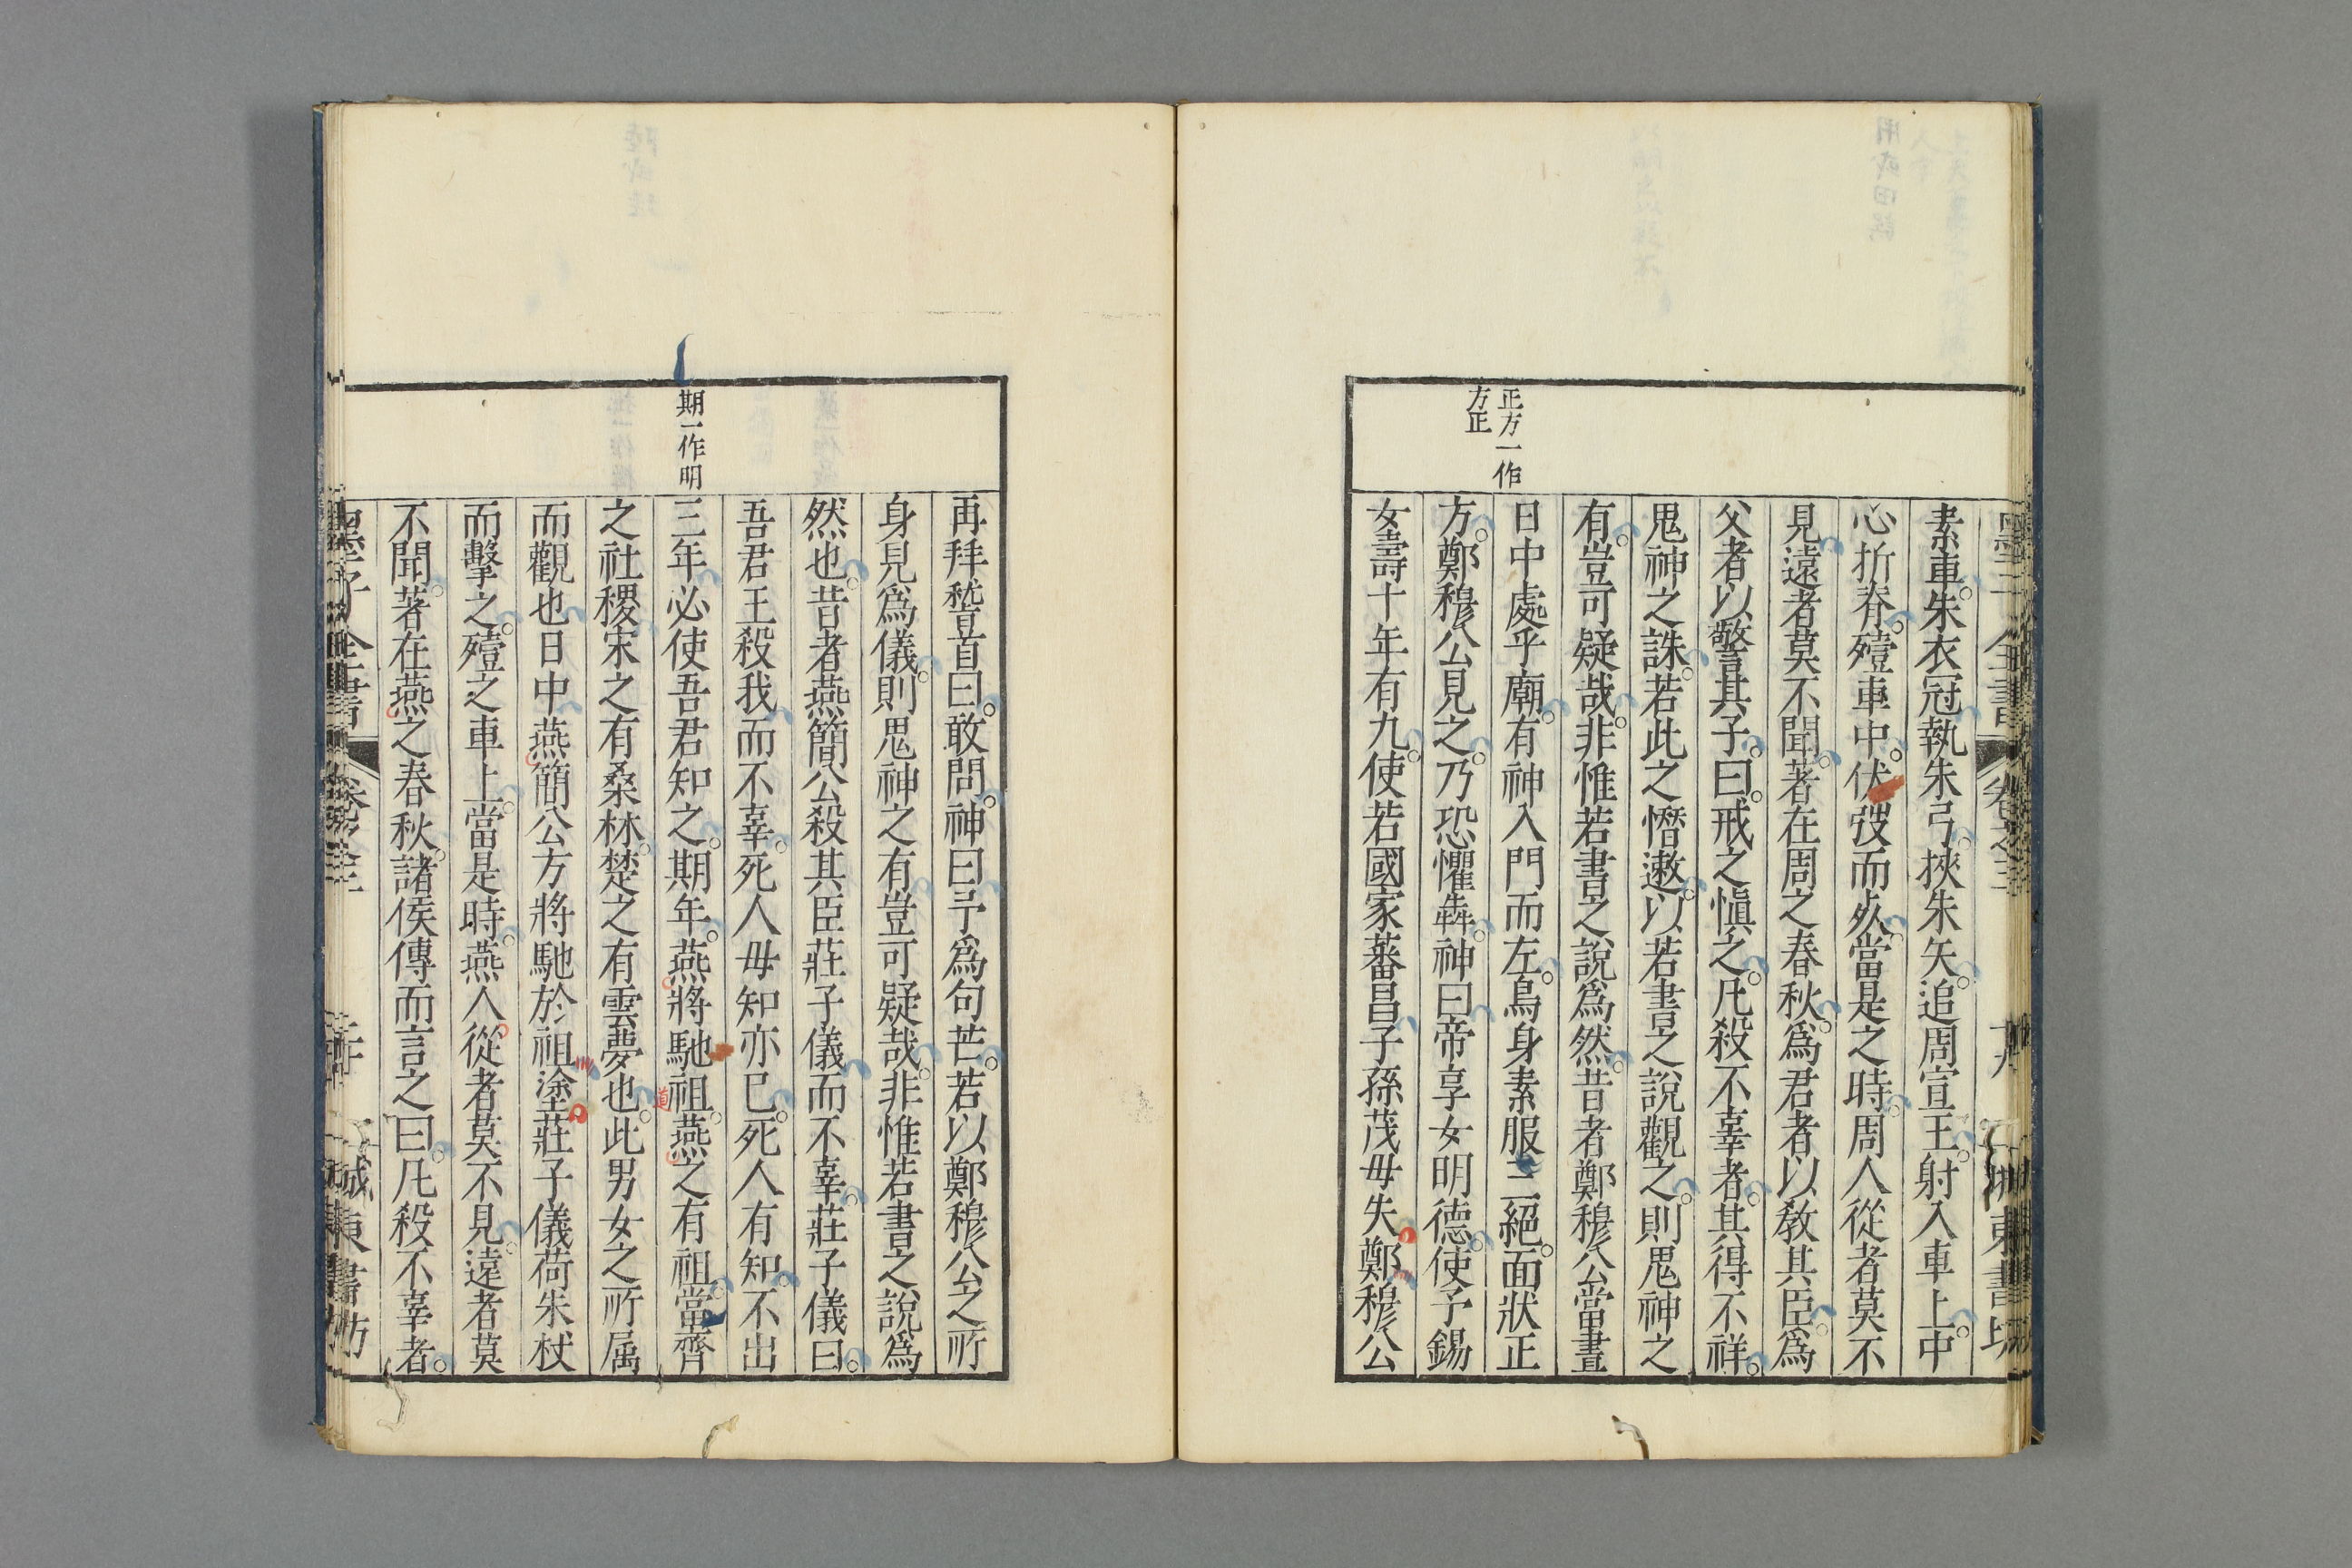 素車。朱衣冠執朱弓。挾朱矢。追周宣王。射入車上。中
心折脊。殪車中。伏弢而死。當是之時。周人從者莫不
見。遠者莫不聞。著在周之春秋。爲君者以敎其臣。爲
父者以警其子。曰。戒之愼之。凡殺不辜者。其得不祥。
鬼神之誅。若此之憯遬。以若書之說觀之。則鬼神之
有。豈可疑哉。非惟若書之說爲然。昔者鄭穆公當晝
日中處乎廟。有神入門而左。鳥身素服三絕。面狀正
方。鄭穆公見之。乃恐懼犇。神曰帝享女明德。使予錫
女壽十年有九。使若國家蕃昌子孫茂毋失鄭穆公
正方一作
方正
再拜稽首曰。敢問。神曰予爲句芒。若以鄭穆公之所
身見爲儀。則鬼神之有豈可疑哉。非惟若書之說爲
然也。昔者燕簡公殺其臣莊子儀而不辜。莊子儀曰。
吾君王殺我而不辜。死人毋知亦已。死人有知。不出
三年必使吾君知之。期年。燕將馳祖。燕之有祖。當齊
之社稷宋之有桑林。楚之有雲夢也。此男女之所属
而觀也日中燕簡公方將馳於祖塗莊子儀荷朱杖
而擊之。殪之車上。當是時。燕人從者莫不見。遠者莫
不聞。著在燕之春秋。諸侯傳而言之曰。凡殺不辜者。
期一作明
道
墨子全書